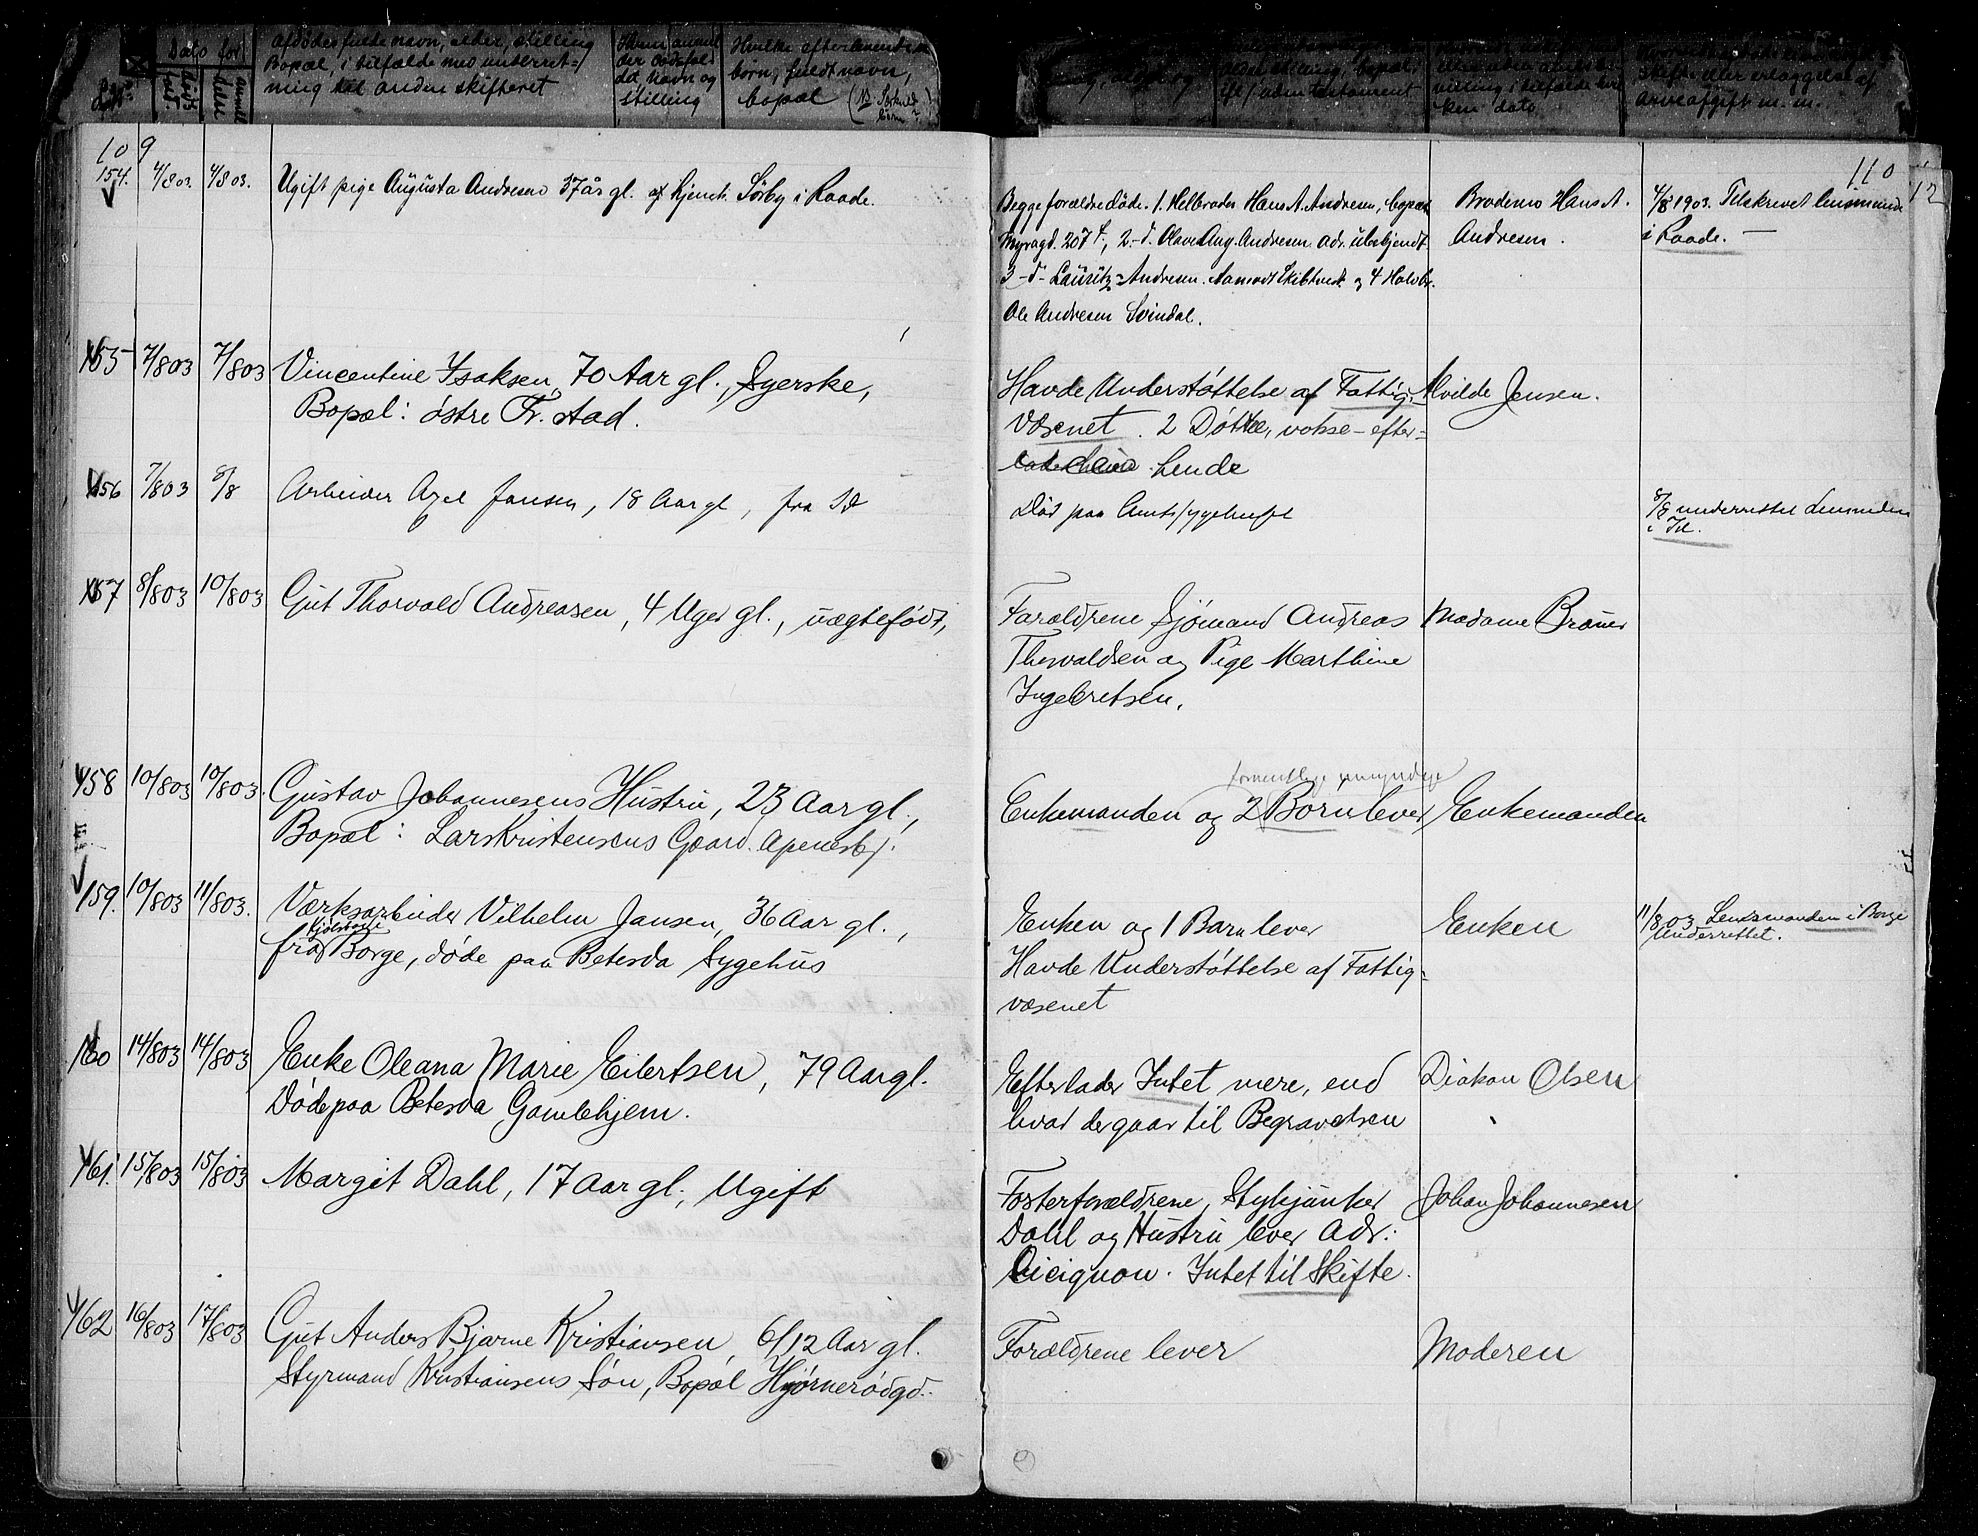 Dato for
Afdødes fulde navn, alder, stilling
Bopæl, i tilfælde med underret-
ning til anden skifteret
stilling
børn, fuldt navn,
bopæl
109
110
154. 4/8 03. 4/8 03. Ugift pige Augusta Andresen 37 år gl. af hjemst. Sörby i Raade.
Begge forældre døde. 1. Helbroder Hans A. Andresen, bopæl
Myragd. 207, 2. -d- Olave Aug. Andresen adr. ubekjendt
3 -d- Lauritz Andresen. Skibtvedt og 4 Halvbr.
Ole Andresen Svindal.
Broderen Hans A.
Andresen.
4/8 1903. Tilskrevet lensmand
i Raade. —
155 7/8 03 7/8 03 Vincentine Isaksen, 70 Aar gl., Syerske,
Bopæl: østre Fr.stad.
Havde Understøttelse af Fattig-
Væsenet. 2 Døttre, vokse- efter-
lende
Alvilde Jensen.
156 7/8 03 8/8 Arbeider Axel Jansen, 18 Aar gl, fra Id
Død paa Amtssygehuset
8/8 underrettet Lensmanden
i Id.
157 8/8 03 10/8 03 Gut Thorvald Andreasen, 4 Uger gl., uægtefødt,
Forældrene Sjømand Andreas
Thorvaldsen og Pige Marthine
Ingebretsen.
Madame Bråner
158 10/8 03 10/8 03. Gustav Johannesens Hustru, 23 Aar gl.,
Bopæl: Lars Kristensens Gaard. Apenesbj.
formentlige umyndige
Enkemanden og 2 Børn lever
Enkemanden
159. 10/8 03 11/8 03. Værksarbeider Vilhelm Jansen, 36 Aar gl.,
fra Borge, døde paa Betesda Sygehus
Enken og 1 Barn lever
Havde Understøttelse af Fattig-
væsenet
Enken
11/8 03 Lensmanden i Borge
Underrettet.
160 14/8 03 14/8 03 Enke Oleana Marie Eilertsen, 79 Aar gl.
Døde paa Betesda Gamlehjem.
Efterlader Intet mere, end
hvad der gaar til Begravelsen
Diakon Olsen
161. 15/8 03 15/8 03 Margit Dahl, 17 Aar gl., Ugift
Fosterforældrene, Stykjunker
Dahl og Hustru lever Adr.:
Cicignon. Intet til Skifte.
Johan Johannesen
162 16/8 03 17/8 03 Gut Anders Bjarne Kristiansen, 6/12 Aar gl.
Styrmand Kristiansens Søn, Bopæl Hjørnerødgd.
Forældrene lever
Moderen